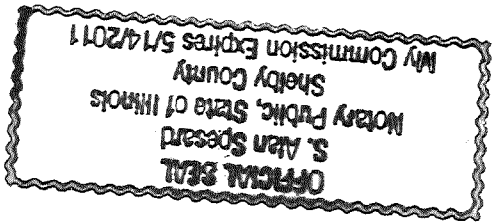 OFFICIAL SEAL
S. Alan Spesard
Notary Public, State of Illinois
Shelby County
My Commission Expires 5/14/2011